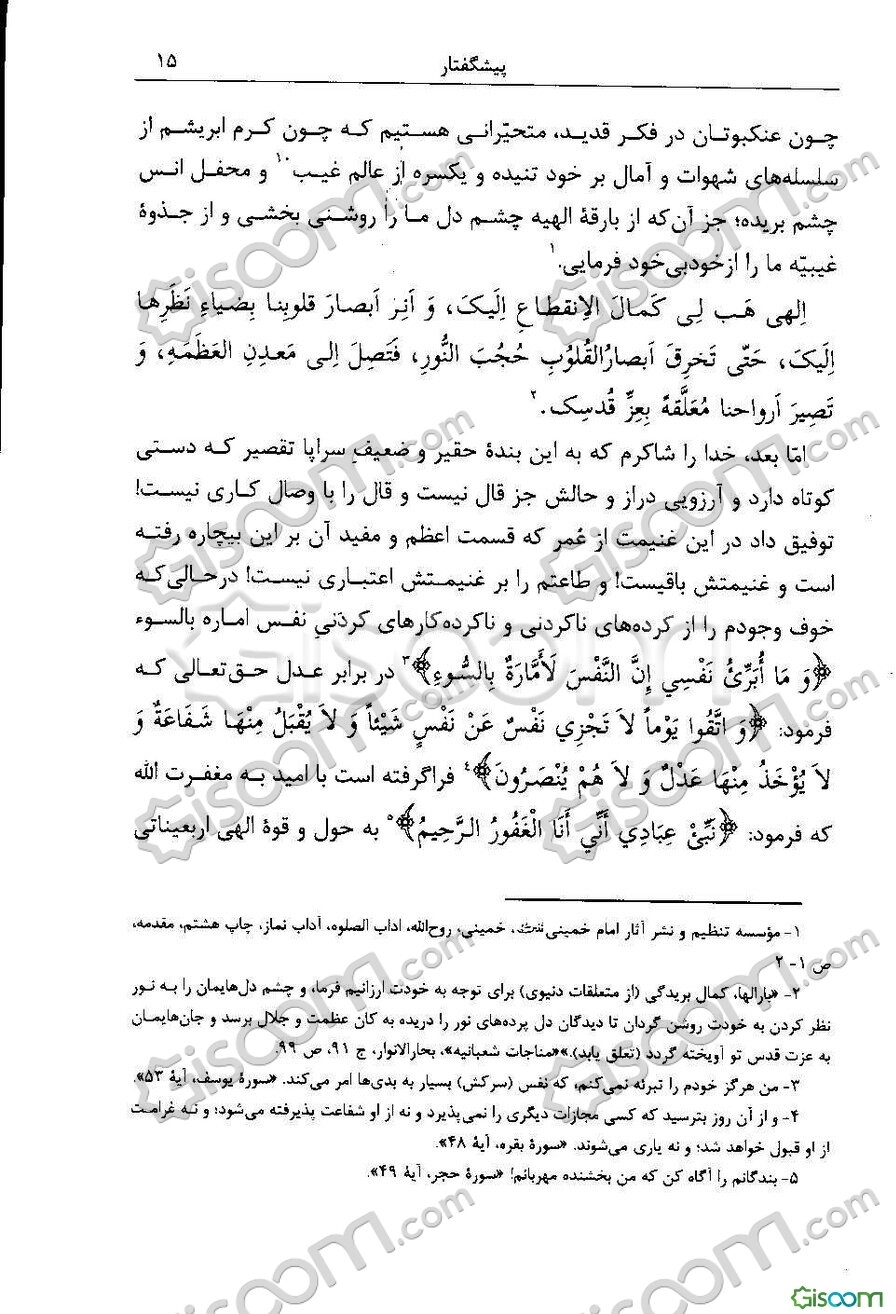 پیشگفتار ۱۵
چون عنکبوتان در فکر قدید، متحیّرانی هستیم که چون کرم ابریشم از
سلسله‌های شهوات و آمال بر خود تنیده و یکسره از عالم غیب و محفل انس
چشم بریده؛ جز آن‌که از بارقهٔ الهیه چشم دل ما را روشنی بخشی و از جذوهٔ
غیبیّه ما را ازخودبی‌خود فرمایی.۱
اِلهی هَب لِی کَمالَ الاِنقطاعِ اِلَیکَ، وَ اَنِر اَبصارَ قلوبِنا بِضیاءِ نَظَرِها
اِلَیکَ، حَتّی تَخرِقَ اَبصارُالقُلُوبِ حُجُبَ النُّورِ، فَتَصِلَ اِلی مَعدِنِ العَظَمَهِ، وَ
تَصِیرَ اَرواحنا مُعَلَّقهً بِعِزِّ قُدسِک.۲
امّا بعد، خدا را شاکرم که به این بندهٔ حقیر و ضعیفِ سراپا تقصیر که دستی
کوتاه دارد و آرزویی دراز و حالش جز قال نیست و قال را با وصال کاری نیست!
توفیق داد در این غنیمت از عُمر که قسمت اعظم و مفید آن بر این بیچاره رفته
است و غنیمتش باقیست! و طاعتم را بر غنیمتش اعتباری نیست! درحالی‌که
خوف وجودم را از کرده‌های ناکردنی و ناکرده‌کارهای کردنیِ نفس اماره بالسوء
﴿وَ مَا أُبَرِّئُ نَفْسِي إِنَّ النَّفْسَ لَأَمَّارَةٌ بِالسُّوءِ﴾۳ در برابر عدل حق‌تعالی که
فرمود: ﴿وَ اتَّقُوا يَوْماً لاَ تَجْزِي نَفْسٌ عَنْ نَفْسٍ شَيْئاً وَ لاَ يُقْبَلُ مِنْهَا شَفَاعَةٌ وَ
لاَ يُؤْخَذُ مِنْهَا عَدْلٌ وَ لاَ هُمْ يُنْصَرُونَ﴾۴ فراگرفته است با امید به مغفرت الله
که فرمود: ﴿نَبِّئْ عِبَادِي أَنِّي أَنَا الْغَفُورُ الرَّحِيمُ﴾۵ به حول و قوهٔ الهی اربعیناتی
۱- مؤسسه تنظیم و نشر آثار امام خمینی، خمینی، روح‌الله، اداب الصلوه، آداب نماز، چاپ هشتم، مقدمه،
ص ۱- ۲
۲- «بارالها، کمال بریدگی (از متعلقات دنیوی) برای توجه به خودت ارزانیم فرما، و چشم دل‌هایمان را به نور
نظر کردن به خودت روشن گردان تا دیدگان دل پرده‌های نور را دریده به کان عظمت و جلال برسد و جان‌هایمان
به عزت قدس تو آویخته گردد (تعلق یابد).»«مناجات شعبانیه»، بحارالانوار، ج ۹۱، ص ۹۹.
۳- من هرگز خودم را تبرئه نمی‌کنم، که نفس (سرکش) بسیار به بدی‌ها امر می‌کند. «سورهٔ یوسف، آیهٔ ۵۳».
۴- و از آن روز بترسید که کسی مجازات دیگری را نمی‌پذیرد و نه از او شفاعت پذیرفته می‌شود؛ و نـه غرامت
از او قبول خواهد شد؛ و نه یاری می‌شوند. «سورهٔ بقره، آیهٔ ۴۸».
۵- بندگانم را آگاه کن که من بخشنده مهربانم! «سورهٔ حجر، آیهٔ ۴۹».
Gisoom